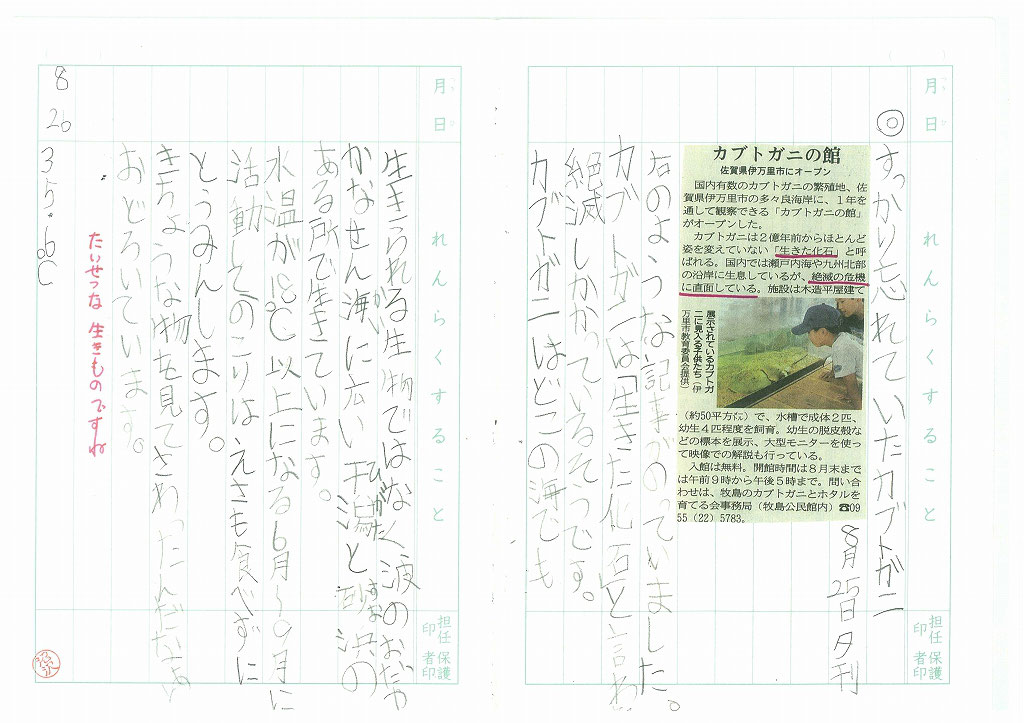 月
日
れんらくすること
担任印
保護者印
◎すっかり忘れていたカブトガニ
8月25日夕刊
カブトガニの館
佐賀県伊万里市にオープン
国内有数のカブトガニの繁殖地、佐
賀県伊万里市の多々良海岸に、1年を
通して観察できる「カブトガニの館」
がオープンした。
カブトガニは2億年前からほとんど
姿を変えていない「生きた化石」と呼
ばれる。国内では瀬戸内海や九州北部
の沿岸に生息しているが、絶滅の危機
に直面している。施設は木造平屋建て
展示されているカブトガ
ニに見入る子供たち(伊
万里市教育委員会提供)
(約50平方㍍)で、水槽で成体2匹、
幼生4匹程度を飼育。幼生の脱皮殻な
どの標本を展示、大型モニターを使っ
て映像での解説も行っている。
入館は無料。開館時間は8月末まで
は午前9時から午後5時まで。問い合
わせは、牧島のカブトガニとホタルを
育てる会事務局(牧島公民館内)☎09
55(22)5783。
右のような記事がのっていました。
カブトガニは「生きた化石」と言われ
絶滅しかかっているそうです。
カブトガニはどこの海でも
月
日
れんらくすること
担任印
保護者印
生きられる生物ではなく波のおだや
かなせん海に広い干潟と砂浜の
かい
ひがた
すな
ある所で生きています。
水温が18℃以上になる6月〜9月に
活動してのこりはえさも食べずに
とうみんします。
きちょうな物を見てさわったんだなぁ
おどろいています。
たいせつな 生きものですね
8
26
35.6℃